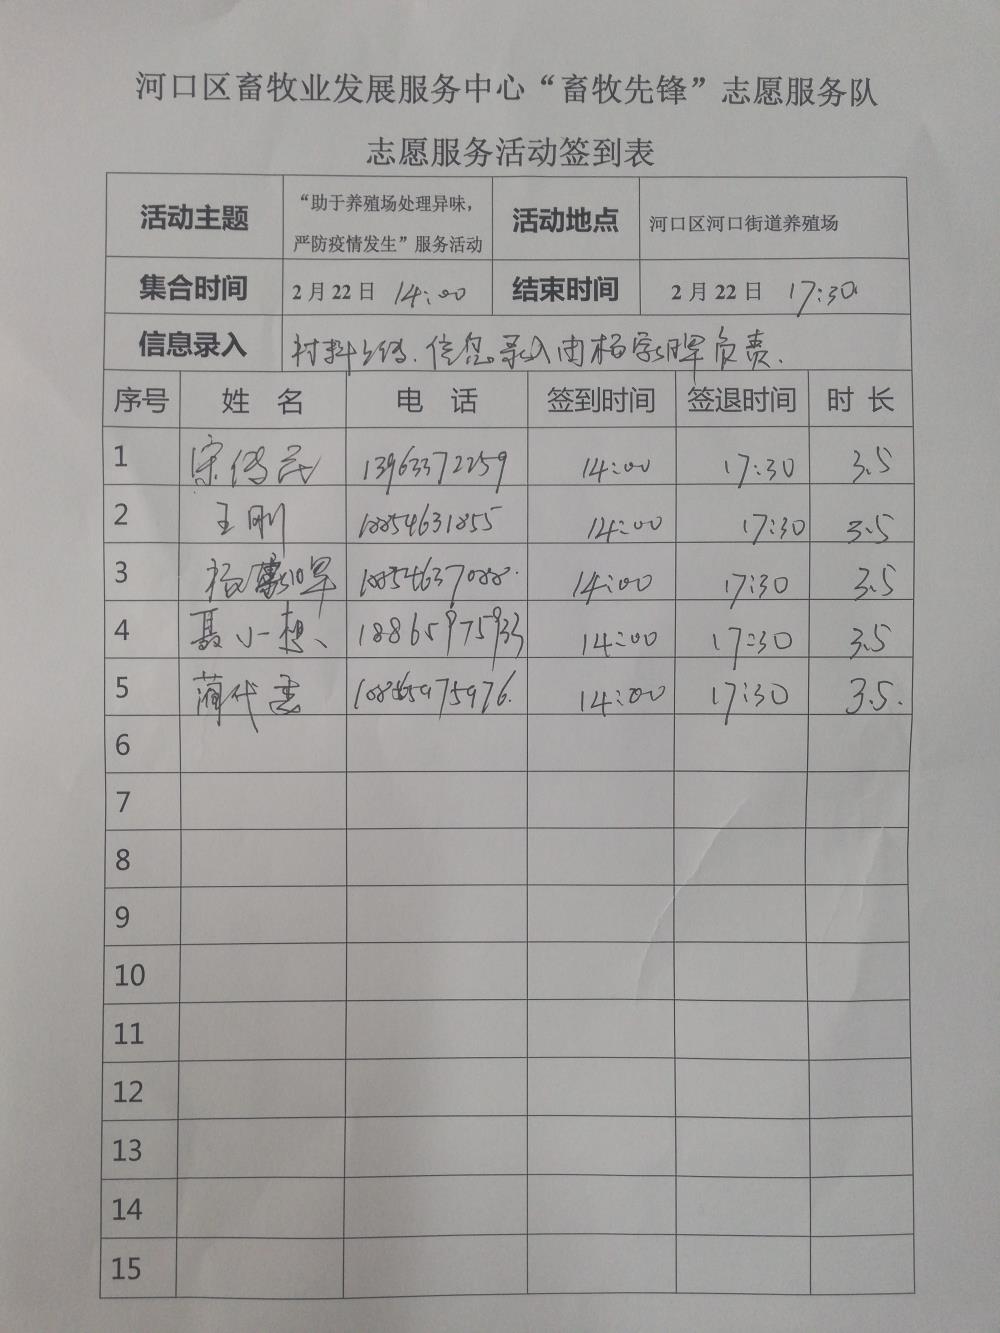 河口区畜牧业发展服务中心“畜牧先锋”志愿服务队
志愿服务活动签到表
活动主题 “助于养殖场处理异味，严防疫情发生”服务活动 活动地点 河口区河口街道养殖场
集合时间 2月22日 14:00 结束时间 2月22日 17:30
信息录入 材料上传.信息录入由杨家晖负责.
序号 姓 名 电 话 签到时间 签退时间 时 长
1 宋传民 13963372259 14:00 17:30 3.5
2 王刚 18854631855 14:00 17:30 3.5
3 杨家晖 18854637088 14:00 17:30 3.5
4 聂小 18865975933 14:00 17:30 3.5
5 蔺代 18865975976 14:00 17:30 3.5
6
7
8
9
10
11
12
13
14
15